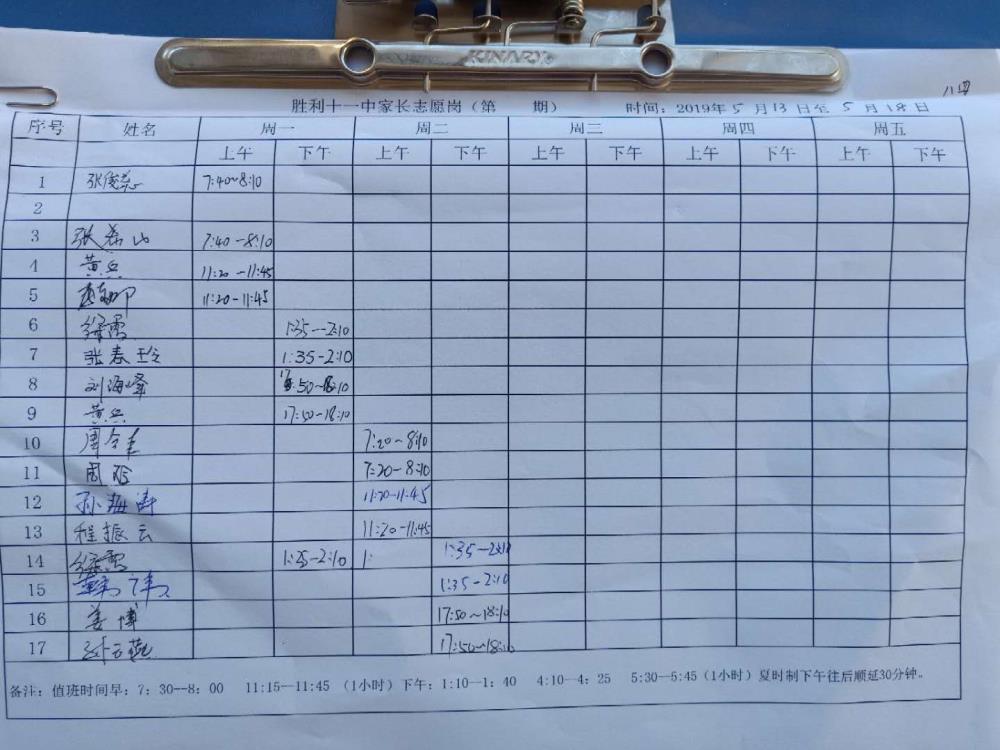 KINARY®
八四
胜利十一中家长志愿岗（第 期） 时间：2019年5月13日至5月18日
序号 姓名 周一 周二 周三 周四 周五
上午 下午 上午 下午 上午 下午 上午 下午 上午 下午
1 张俊 7:40~8:10
2
3 张 山 7:40-8:10
4 黄兵 11:20-11:45
5 11:20-11:45
6 徐雷 1:35-2:10
7 张春玲 1:35-2:10
8 刘海峰 17:50~18:10
9 黄兵 17:50-18:10
10 周 7:20~8:10
11 周 7:20-8:10
12 孙海涛 11:20-11:45
13 程振云 11:20-11:45
14 徐雷 1:25-2:10 1: 1:35-2:10
15 1:35-2:10
16 姜博 17:50~18:10
17 燕 17:50-18:10
备注：值班时间早：7：30--8：00 11:15--11:45 （1小时）下午：1:10--1：40 4:10--4：25 5:30--5:45（1小时）夏时制下午往后顺延30分钟。